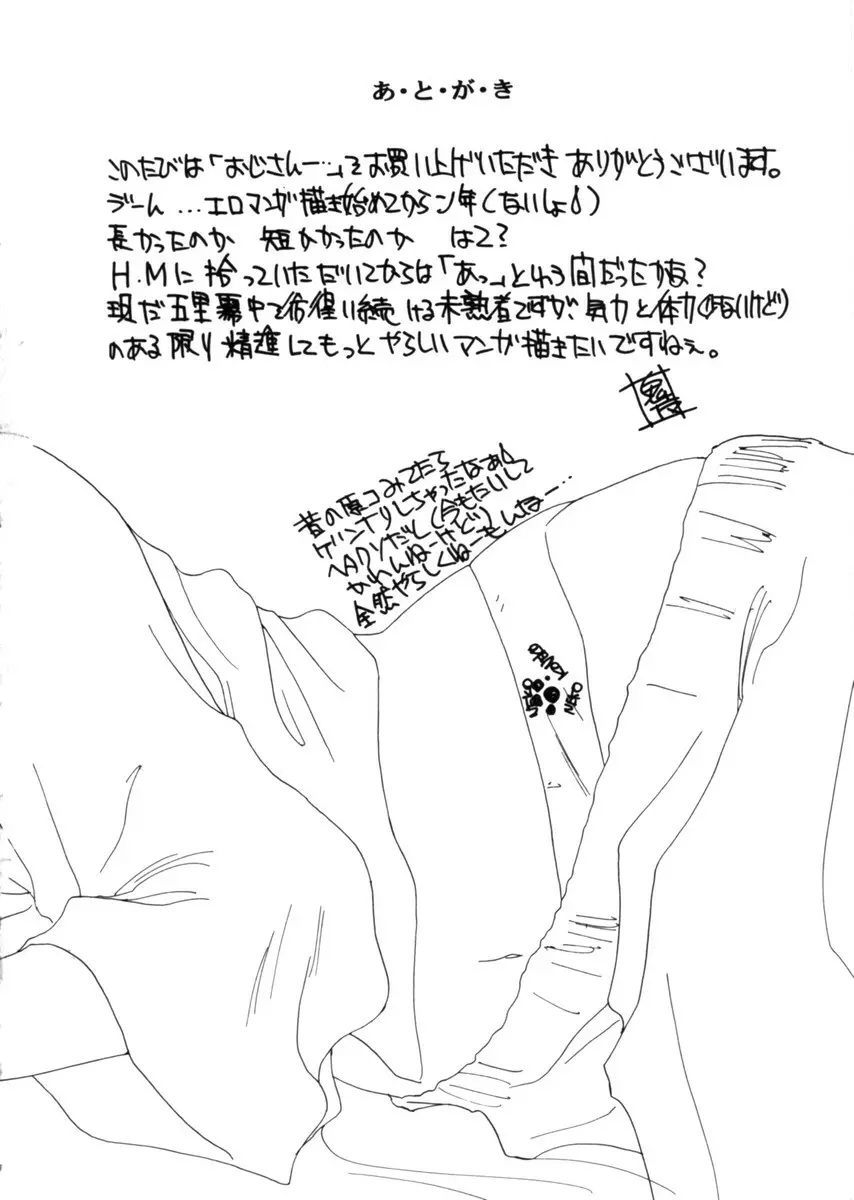 あ・と・が・き
このたびは「おじさんー…」をお買い上げいただき ありがとうございます。
うーん …エロマンガ描き始めてからン年(ないしょ)
長かったのか 短かかったのか はて?
H.Mに拾っていただいてからは「あっ」という間だったかな?
現だ五里霧中で彷徨い続ける未熟者ですが、気力と体力(もないけど)
のある限り精進してもっとやらしいマンガ描きたいですねぇ。
昔の原コみてたら
ゲンナリしちゃったなあ
ヘタクソだと(今もたいして
かわんねーけど)
全然やらしくねーもんなー…
NEKO